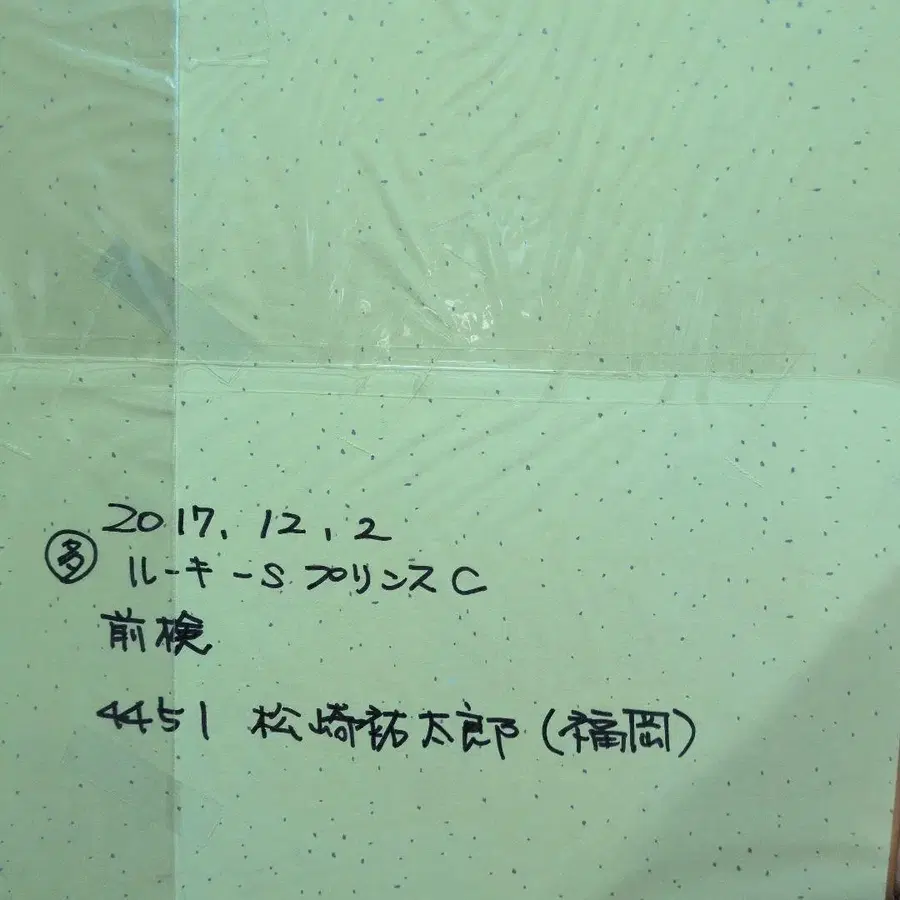 2017.12.2
㊂多 ルーキーSプリンスC
前検
4451 松崎祐太郎(福岡)